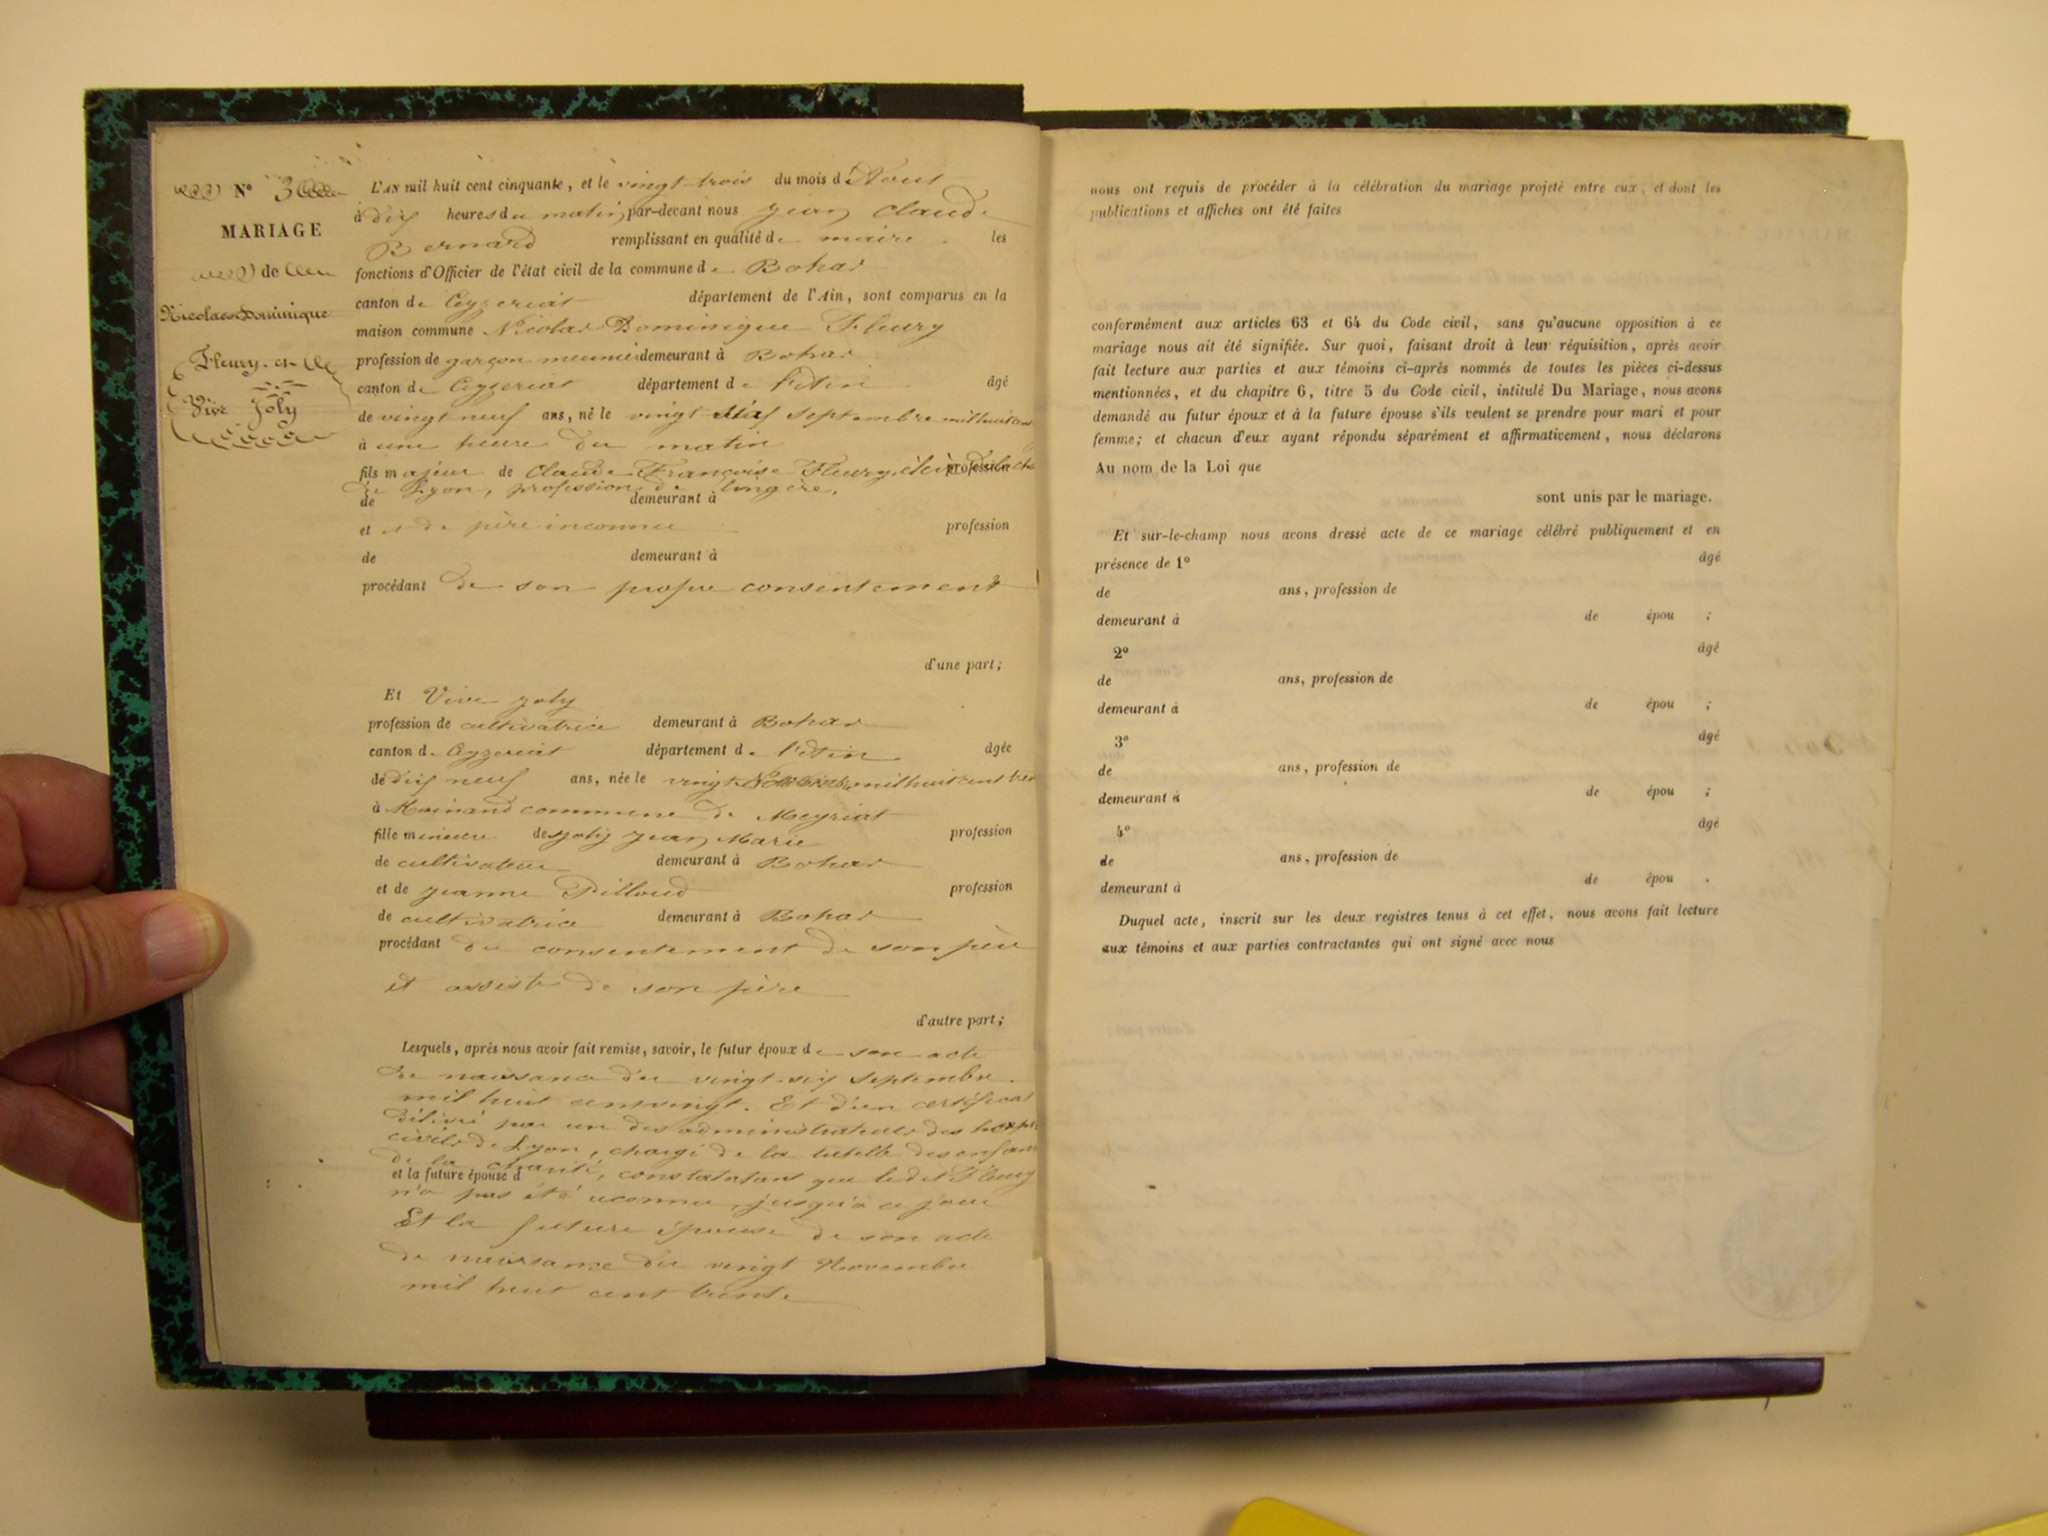 N° 3
MARIAGE
de
Nicolas Dominique
Fleury et
Vive Joly
L'AN mil huit cent cinquante, et le vingt trois du mois d'Aout
à dix heures du matin, par-devant nous Jean Claude
Bernard remplissant en qualité de maire les
fonctions d'Officier de l'état civil de la commune de Bohas
canton de Ceyzeriat département de l'Ain, sont comparus en la
maison commune Nicolas Dominique Fleury
profession de garçon meunier demeurant à Bohas
canton de Ceyzeriat département de l'Ain âgé
de vingt neuf ans, né le vingt six septembre mil huit cent
à une heure du matin
fils majeur de Claude Françoise Fleury, profession
de Lyon, profession de lingère,
de demeurant à
et de père inconnu profession
de demeurant à
procédant de son propre consentement
d'une part;
Et Vive Joly
profession de cultivatrice demeurant à Bohas
canton de Ceyzeriat département de l'Ain âgée
de dix neuf ans, née le vingt Novembre mil huit cent
à Moinand commune de Meyriat
fille mineure de Joly Jean Marie profession
de cultivateur demeurant à Bohas
et de Jeanne Pilloud profession
de cultivatrice demeurant à Bohas
procédant du consentement de son père
et assisté de son père
d'autre part;
Lesquels, après nous avoir fait remise, savoir, le futur époux de son acte
de naissance du vingt six septembre
mil huit cent vingt. Et d'un certificat
délivré par un des administrateurs des
civils de Lyon, chargé de la tutelle des
de la charité, constatant que le dit Fleury
et la future épouse d
n'a pas été reconnu jusqu'à ce jour
Et la future épouse de son acte
de naissance du vingt Novembre
mil huit cent trente
nous ont requis de procéder à la célébration du mariage projeté entre eux, et dont les
publications et affiches ont été faites
conformément aux articles 63 et 64 du Code civil, sans qu'aucune opposition à ce
mariage nous ait été signifiée. Sur quoi, faisant droit à leur réquisition, après avoir
fait lecture aux parties et aux témoins ci-après nommés de toutes les pièces ci-dessus
mentionnées, et du chapitre 6, titre 5 du Code civil, intitulé Du Mariage, nous avons
demandé au futur époux et à la future épouse s'ils veulent se prendre pour mari et pour
femme; et chacun d'eux ayant répondu séparément et affirmativement, nous déclarons
Au nom de la Loi que
sont unis par le mariage.
Et sur-le-champ nous avons dressé acte de ce mariage célébré publiquement et en
présence de 1° âgé
de ans, profession de
demeurant à de épou ;
2° âgé
de ans, profession de
demeurant à de épou ;
3° âgé
de ans, profession de
demeurant à de épou ;
4° âgé
de ans, profession de
demeurant à de épou .
Duquel acte, inscrit sur les deux registres tenus à cet effet, nous avons fait lecture
aux témoins et aux parties contractantes qui ont signé avec nous